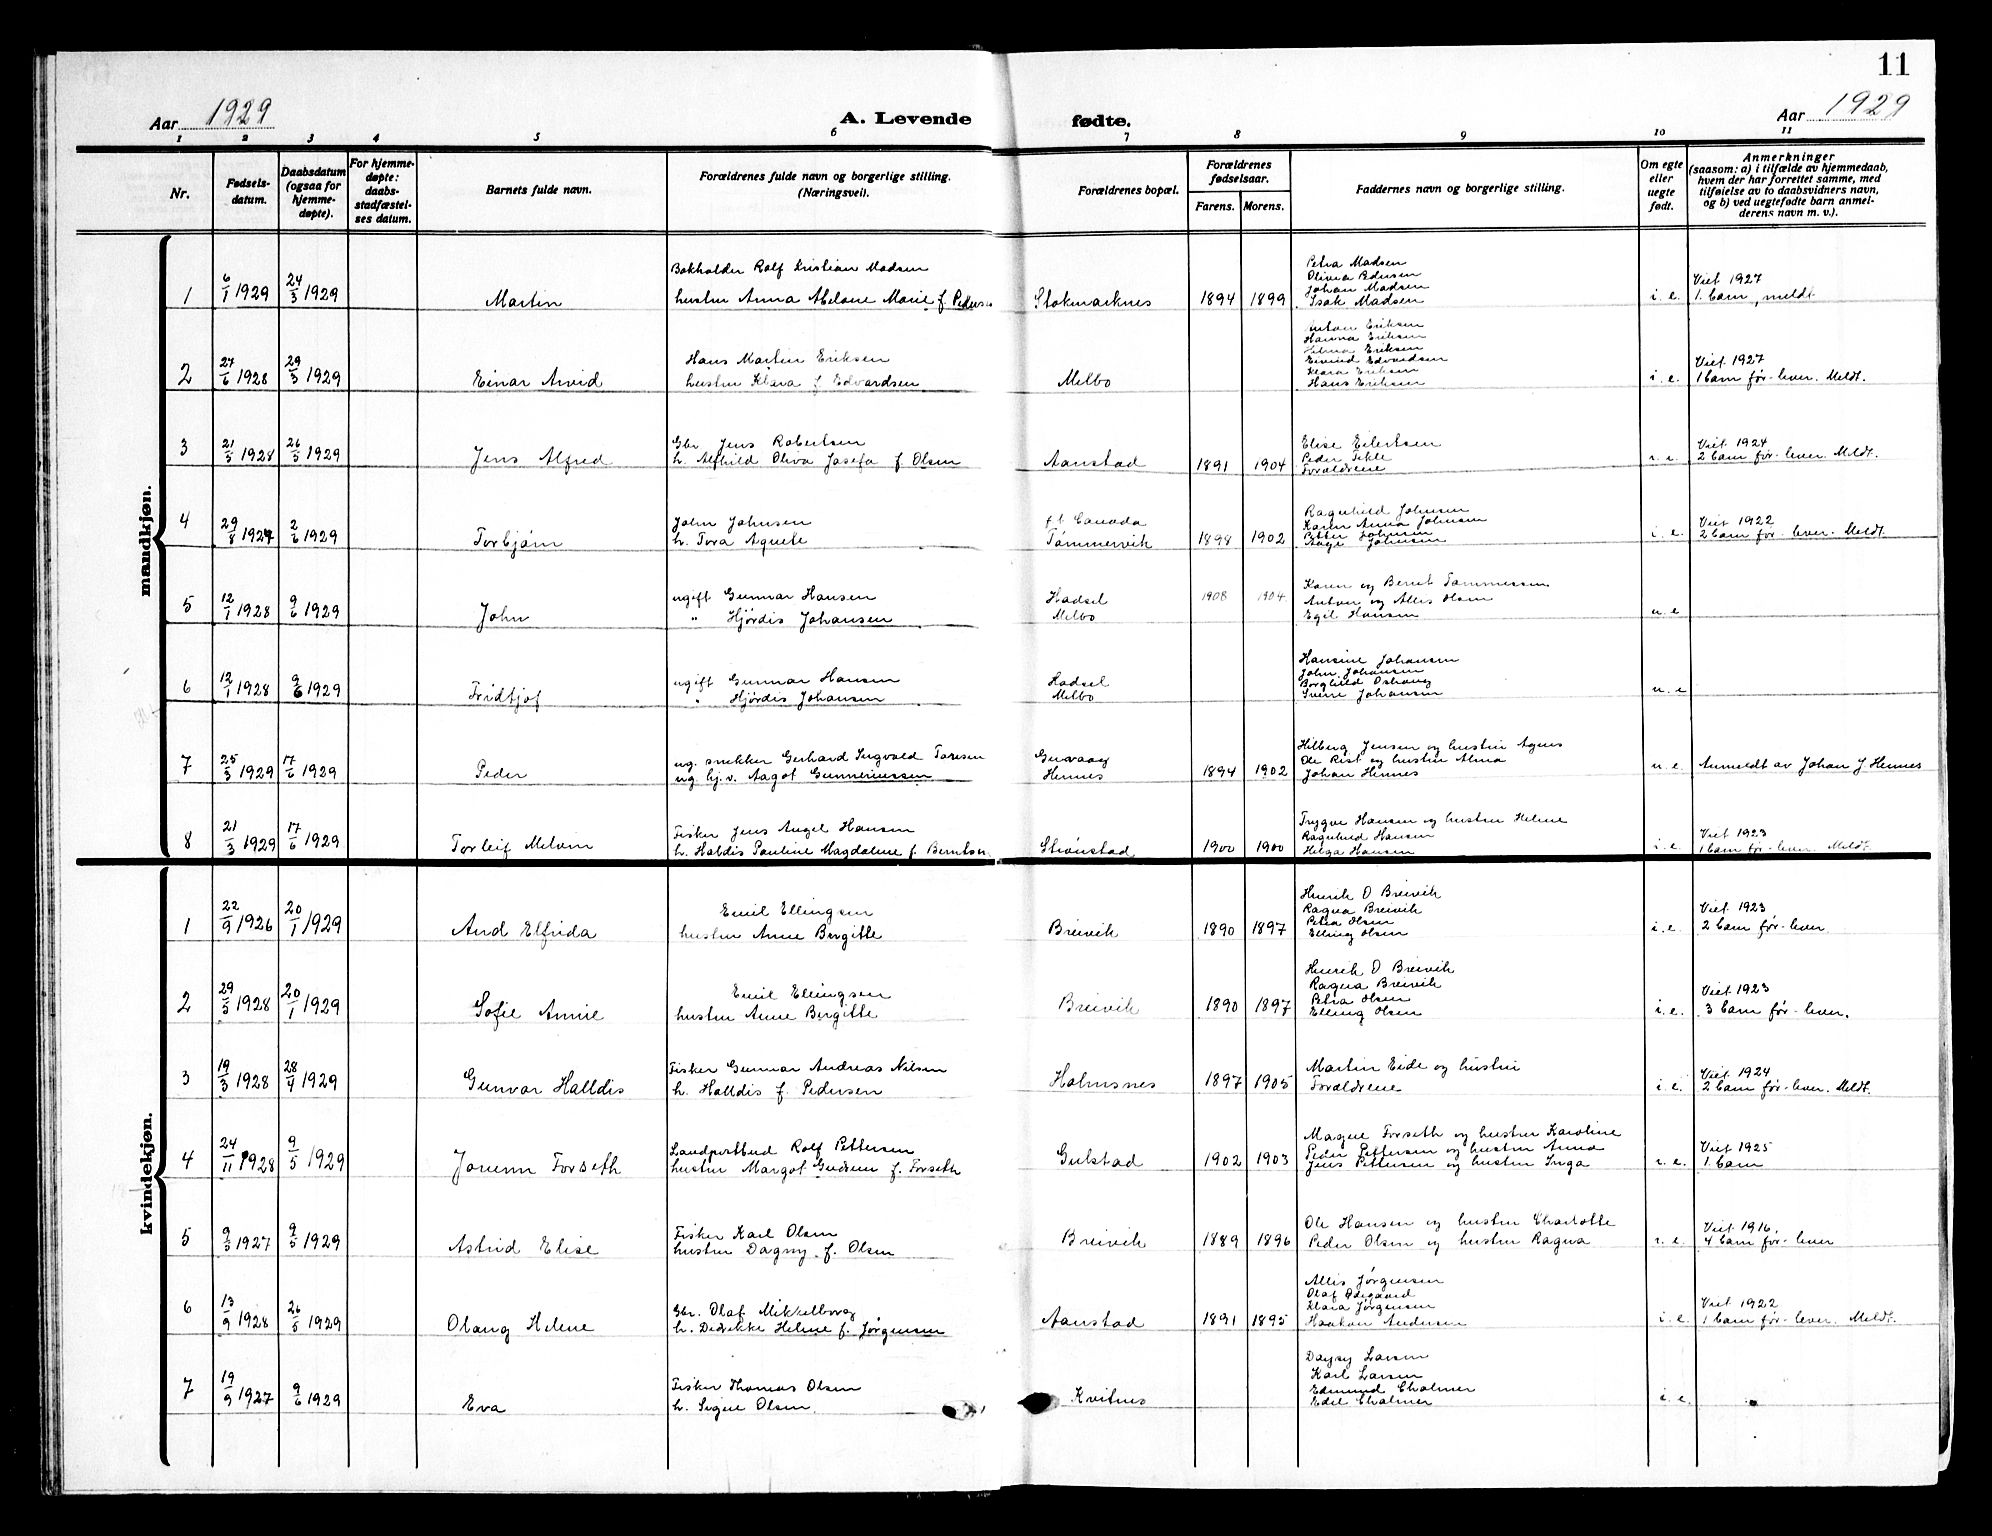 11
Aar 1929
A. Levende fødte.
Aar 1929
1 2 3 4 5 6 7 8 9 10 11
Nr.
Fødsels-
datum.
Daabsdatum
(ogsaa for
hjemme-
døpte).
For hjemme-
døpte:
daabs-
stadfæstel-
ses datum.
Barnets fulde navn.
Forældrenes fulde navn og borgerlige stilling.
(Næringsvei).
Forældrenes bopæl.
Forældrenes
fødselsaar.
Farens. Morens.
Faddernes navn og borgerlige stilling.
Om egte
eller
uegte
født.
Anmerkninger
(saasom: a) i tilfælde av hjemmedaab,
hvem der har forrettet samme, med
tilføielse av to daabsvidners navn,
og b) ved uegtefødte barn anmel-
derens navn m. v.).
mandkjøn.
1
6/1 1929
24/3 1929
Martin
Bokholder Rolf Kristian Madsen
hustru Anna Abelone Marie f. Peders
Stokmarknes
1894 1899
Petra Madsen
Olivia Pedersen
Johan Madsen
Isak Madsen
i. e.
Viet 1927
1. barn, meldt
2
27/6 1928
29/3 1929
Einar Arvid
Hans Martin Eriksen
hustru Klara f. Edvardsen
Melbo
Anton Eriksen
Hanna Eriksen
Eriksen
Eivind Edvardsen
Klara Eriksen
Hans Eriksen
i. e.
Viet 1927
1 barn før - lever. Meldt.
3
21/3 1928
26/5 1929
Jens Alfred
Gbr. Jens Robertsen
h. Alfhild Oliva Josefa f. Olsen
Aanstad
1891 1904
Elise Eilertsen
Peder
Forældrene
i. e.
Viet 1924
2 barn før - lever. Meldt.
4
29/8 1927
2/6 1929
Torbjørn
John Johnsen
h. Tora Agnete
f.t. Canada
Tømmervik
1898 1902
Ragnhild Johnsen
Karen Anna Johnsen
Petter Johnsen
Aage Johnsen
i. e.
Viet 1922
2 barn før - lever. Meldt.
5
12/1 1928
9/6 1929
John
ugift Gunnar Hansen
" Hjördis Johansen
Hadsel
Melbo
1908 1904
Karen og Bernt Tommessen
Anton og Allis Olsen
Egil Hansen
u. e
6
12/1 1928
9/6 1929
Fridtjof
ugift Gunnar Hansen
" Hjördis Johansen
Hadsel
Melbo
Hansine Johansen
John Johansen
Borghild
Sverre Johansen
u. e
7
25/3 1929
17/6 1929
Peder
ug. snekker Gerhard Ingvald Toresen
ug. hj. v. Aagot Gunneriussen
Guvaag
Hennes
1894 1902
Hilberg Jensen og hustru Agnes
Ole Rist og hustru Alma
Johan Hennes
u. e.
Anmeldt av Johan J Hennes
8
21/3 1929
17/6 1929
Torleif Melvin
Fisker Jens Angel Hansen
h. Haldis Pauline Magdalene f. Berntsen
Strønstad
1900 1900
Trygve Hansen og hustru Helene
Ragnhild Hansen
Helga Hansen
i. e.
Viet 1923
1 barn før - lever. Meldt.
kvindekjøn.
1
22/9 1926
20/1 1929
Aud Elfrida
Emil Ellingsen
hustru Anne Bergitte
Breivik
1890 1897
Henrik O Breivik
Ragna Breivik
Petra Olsen
Elling Olsen
i. e.
Viet 1923
2 barn før - lever
2
29/5 1928
20/1 1929
Sofie Annie
Emil Ellingsen
hustru Anne Bergitte
Breivik
1890 1897
Henrik O Breivik
Ragna Breivik
Petra Olsen
Elling Olsen
i. e.
Viet 1923
3 barn før - lever.
3
19/3 1928
28/4 1929
Gunvor Halldis
Fisker Gunnar Andreas Nilsen
h. Halldis f. Pedersen
Holmsnes
1897 1905
Martin Eide og hustru
Forældrene
i. e.
Viet 1924
2 barn før - lever. Meldt.
4
24/11 1928
9/5 1929
Jorunn Forseth
Landpostbud Rolf Pettersen
hustru Margot Gudrun f. Forseth
Gulstad
1902 1903
Magne Forseth og hustru Karoline
Peder Pettersen og hustru Anna
Jens Pettersen og hustru Inga
i. e.
Viet 1925
1. barn
5
9/5 1927
9/5 1929
Astrid Elise
Fisker Karl Olsen
hustru Dagny f. Olsen
Breivik
1889 1896
Ole Hansen og hustru Charlotte
Peder Olsen og hustru Ragna
i. e.
Viet 1916.
4 barn før - lever
6
13/9 1928
26/5 1929
Olaug Helene
Gbr. Olaf Mikkelborg
h. Dedrikke Helene f. Jørgensen
Aanstad
1891 1895
Allis Jørgensen
Olaf Ødegaard
Klara Jørgensen
Haakon Andersen
i. e.
Viet 1922
1 barn før - lever. Meldt.
7
19/9 1927
9/6 1929
Eva
Fisker Thomas Olsen
h. Signe Olsen
Kvitnes
Dagny Larsen
Karl Larsen
Edmund Chalmer
Edel Chalmer
i. e.